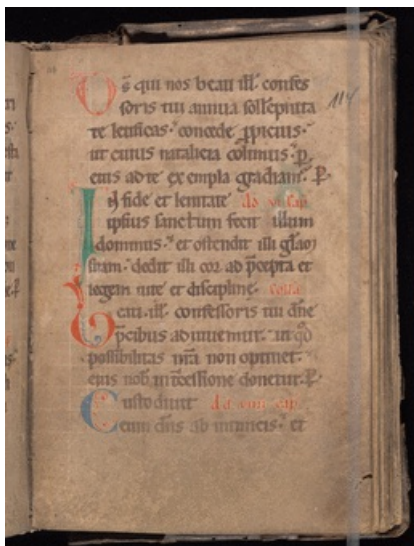 114
Ds qui nos beati ill. confes
soris tui annua sollepnita
te letificas. concede ppicius.
ut cuius natalicia colimus. p
eius ad te exempla gradiam. P.
In fide et lenitate Ad vesp
ipsius sanctum fecit illum
dominus. et ostendit illi glam
suam. dedit illi cor ad pcepta et
legem uite et discipline. colla
Beati ill. confessoris tui dne
pcibus adiuuemur. ut qd
possibilitas nra non optinet.
eius nob intcessione donetur. P.
Custodiuit
eum dns ab inimicis. et